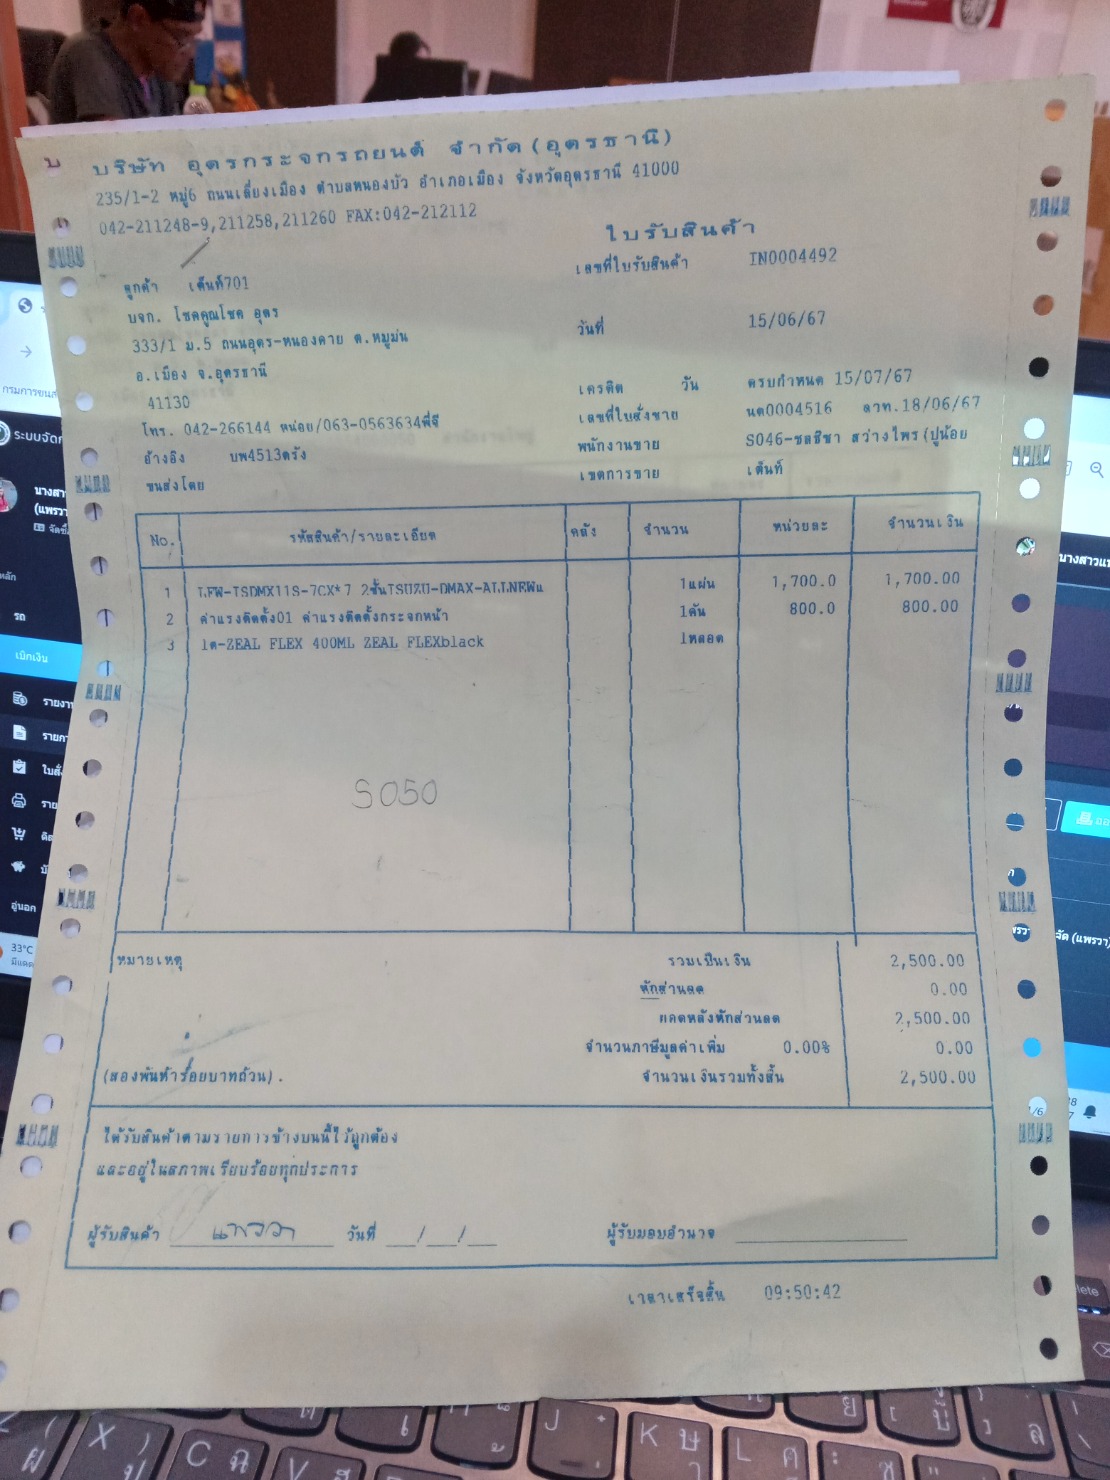 บริษัท อุดรกระจกรถยนต์ จำกัด(อุดรธานี)
235/1-2 หมู่6 ถนนเลี่ยงเมือง ตำบลหนองบัว อำเภอเมือง จังหวัดอุดรธานี 41000
042-211248-9,211258,211260 FAX:042-212112
ใบรับสินค้า
เลขที่ใบรับสินค้า IN0004492
ลูกค้า เต็นท์701
บจก. โชคคูณโชค อุดร
วันที่ 15/06/67
333/1 ม.5 ถนนอุดร-หนองคาย ต.หมูม่น
อ.เมือง จ.อุดรธานี
เครดิต วัน ครบกำหนด 15/07/67
41130
เลขที่ใบสั่งขาย นค0004516 ลวท.18/06/67
โทร. 042-266144 หน่อย/063-0563634พี่จี
พนักงานขาย S046-ชลธิชา สว่างไพร(ปูน้อย
อ้างอิง บพ4513ครัง
เขตการขาย เต็นท์
ขนส่งโดย
No. รหัสสินค้า/รายละเอียด คลัง จำนวน หน่วยละ จำนวนเงิน
1 LFW-ISDMX11S-7CX*7 2ชั้นISUZU-DMAX-ALLNEWแ 1แผ่น 1,700.0 1,700.00
2 ค่าแรงติดตั้ง01 ค่าแรงติดตั้งกระจกหน้า 1คัน 800.0 800.00
3 1ค-ZEAL FLEX 400ML ZEAL FLEXblack 1หลอด
S050
หมายเหตุ รวมเป็นเงิน 2,500.00
หักส่วนลด 0.00
ยอดหลังหักส่วนลด 2,500.00
จำนวนภาษีมูลค่าเพิ่ม 0.00% 0.00
(สองพันห้าร้อยบาทถ้วน). จำนวนเงินรวมทั้งสิ้น 2,500.00
ได้รับสินค้าตามรายการข้างบนนี้ไว้ถูกต้อง
และอยู่ในสภาพเรียบร้อยทุกประการ
ผู้รับสินค้า แพรวา วันที่ __/__/__ ผู้รับมอบอำนาจ
เวลาเสร็จสิ้น 09:50:42